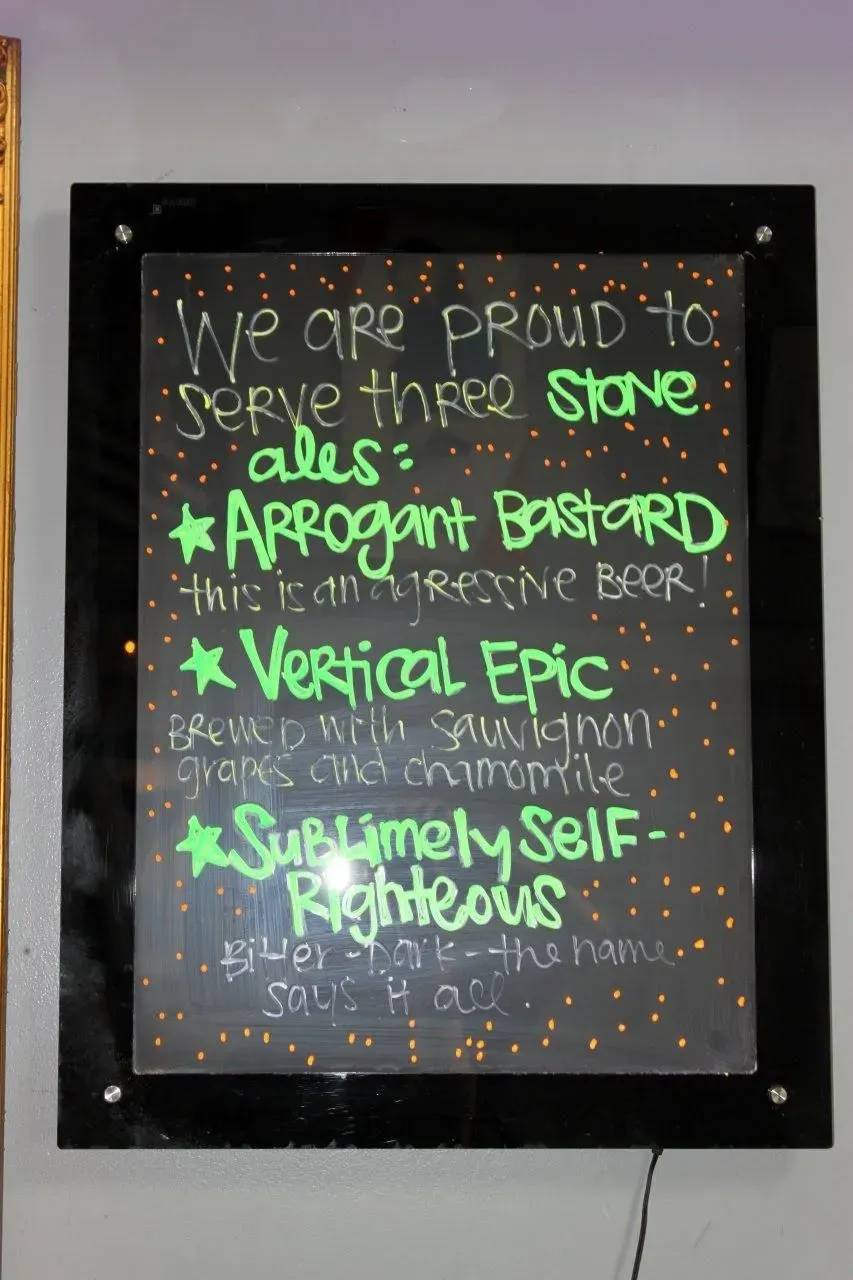 We are proud to
serve three Stone
ales:
★ Arrogant Bastard
this is an agressive Beer!
★ Vertical Epic
Brewed with Sauvignon
grapes and chamomile
★ Sublimely Self-
Righteous
Bitter - Dark - the name
says it all.